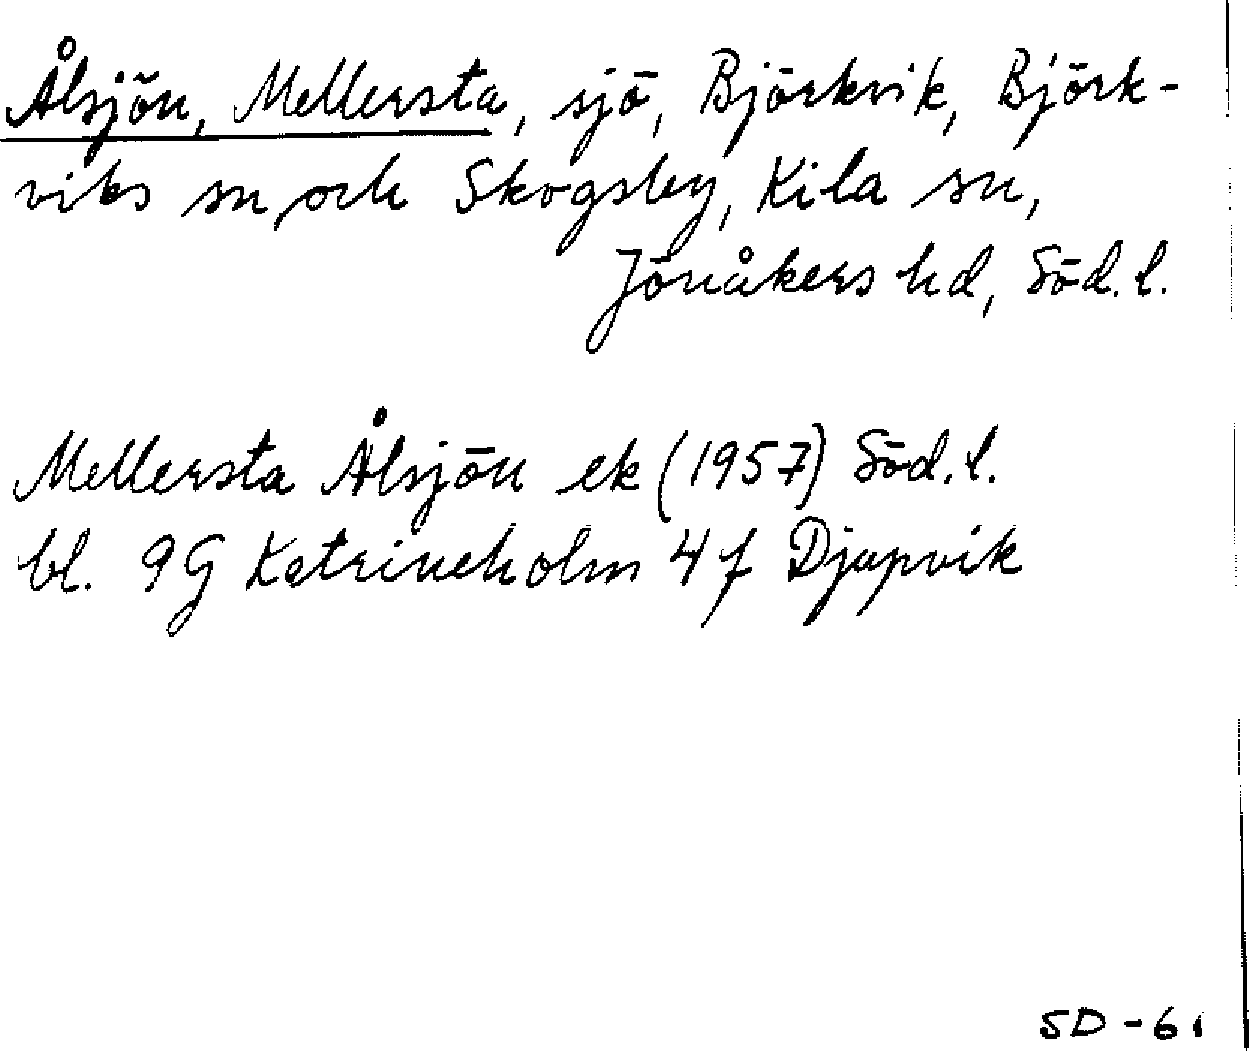 Ålsjön, Mellersta, sjö, Björkvik, Björk-
viks sn, och Skogsby, Kila sn,
Jönåkers hd, Söd. l.
Mellersta Ålsjön ek (1957) Söd. l.
bl. 9G Katrineholm 4f Djupvik
SD-61